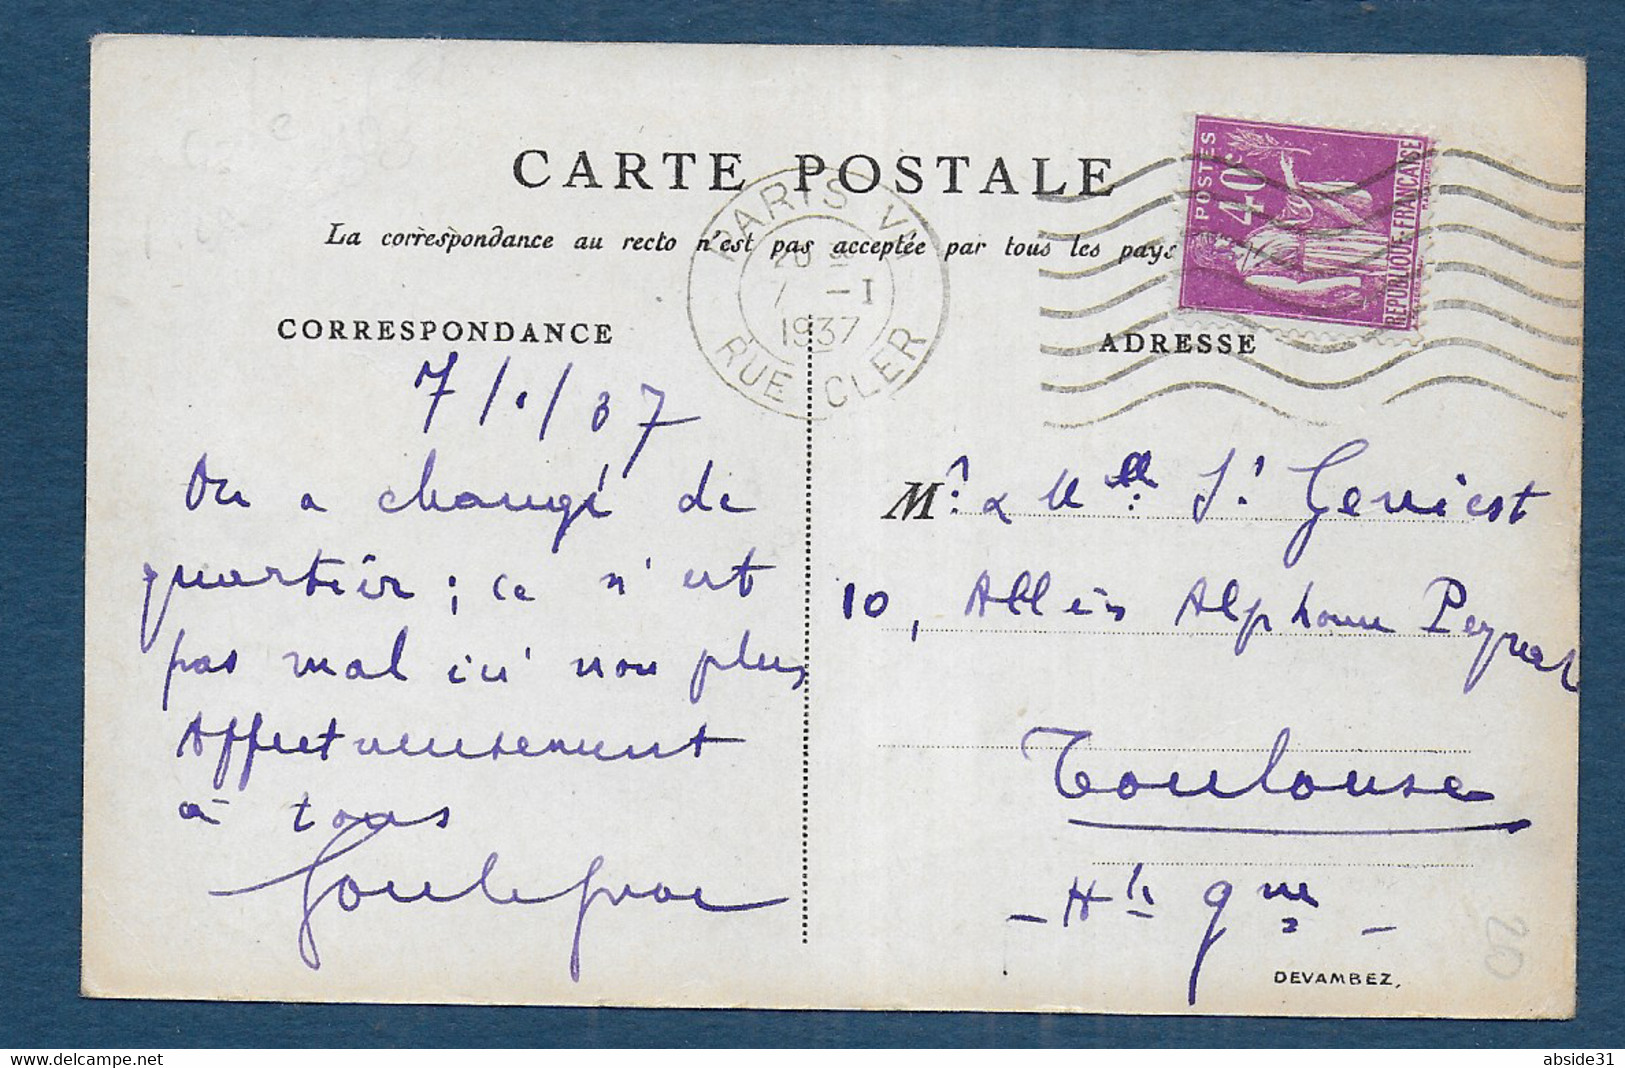 CARTE POSTALE
La correspondance au recto n'est pas acceptée par tous les pays
POSTES
40c
REPUBLIQUE-FRANÇAISE
PARIS VII
20
7 -I
1937
RUE CLER
CORRESPONDANCE
7/1/37
On a changé de
quartier ; ce n'est
pas mal ici non plus
Affectueusement
à tous
ADRESSE
Mr. & Melle. St Geniest
10, Allées Alphonse Peyrat
Toulouse
- Hte Gne -
DEVAMBEZ.
20
abside31